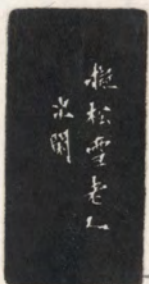 擬松雪老人
次閑